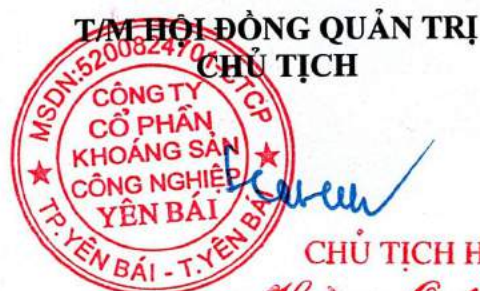 T/M HỘI ĐỒNG QUẢN TRỊ
CHỦ TỊCH
MSDN:5200824707-CTCP
CÔNG TY
CỔ PHẦN
KHOÁNG SẢN
CÔNG NGHIỆP
YÊN BÁI
TP.YÊN BÁI - T.YÊN BÁI
CHỦ TỊCH H